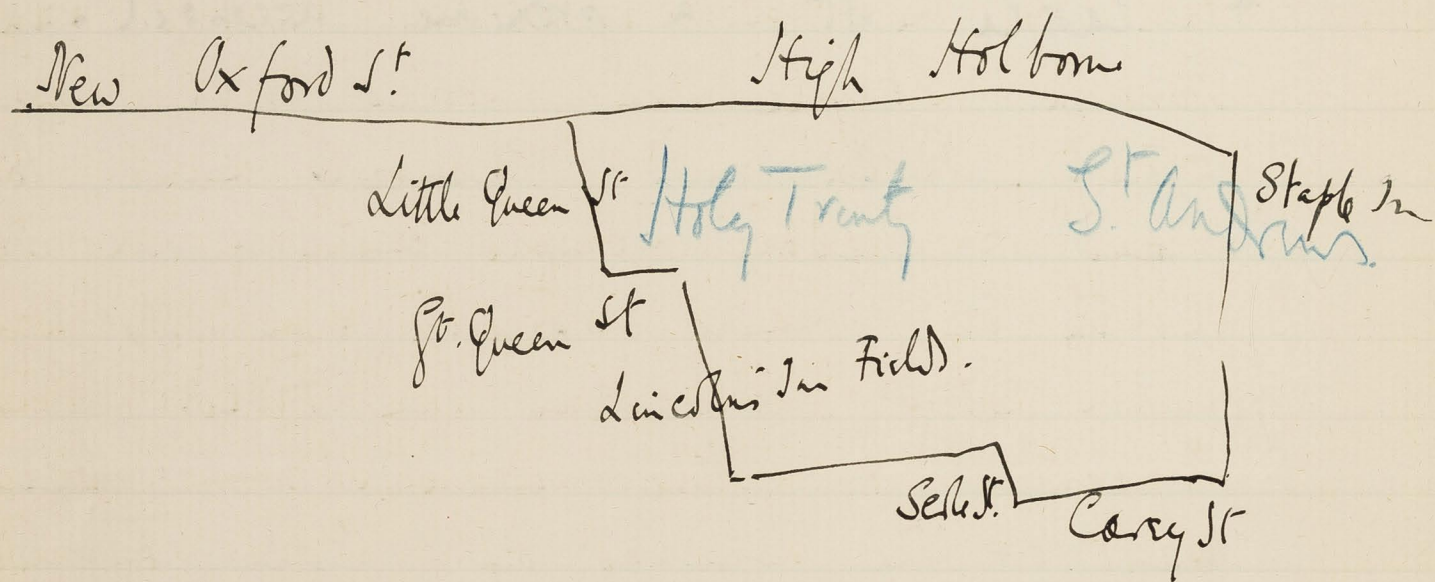 New Oxford St. High Holborn
Little Queen St Holy Trinity St Andrews. Staple Inn
Gt. Queen St
Lincolns Inn Fields.
Serle St. Carey St